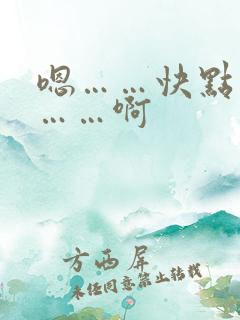 嗯……快點
……啊
方西屏
未经同意禁止转载